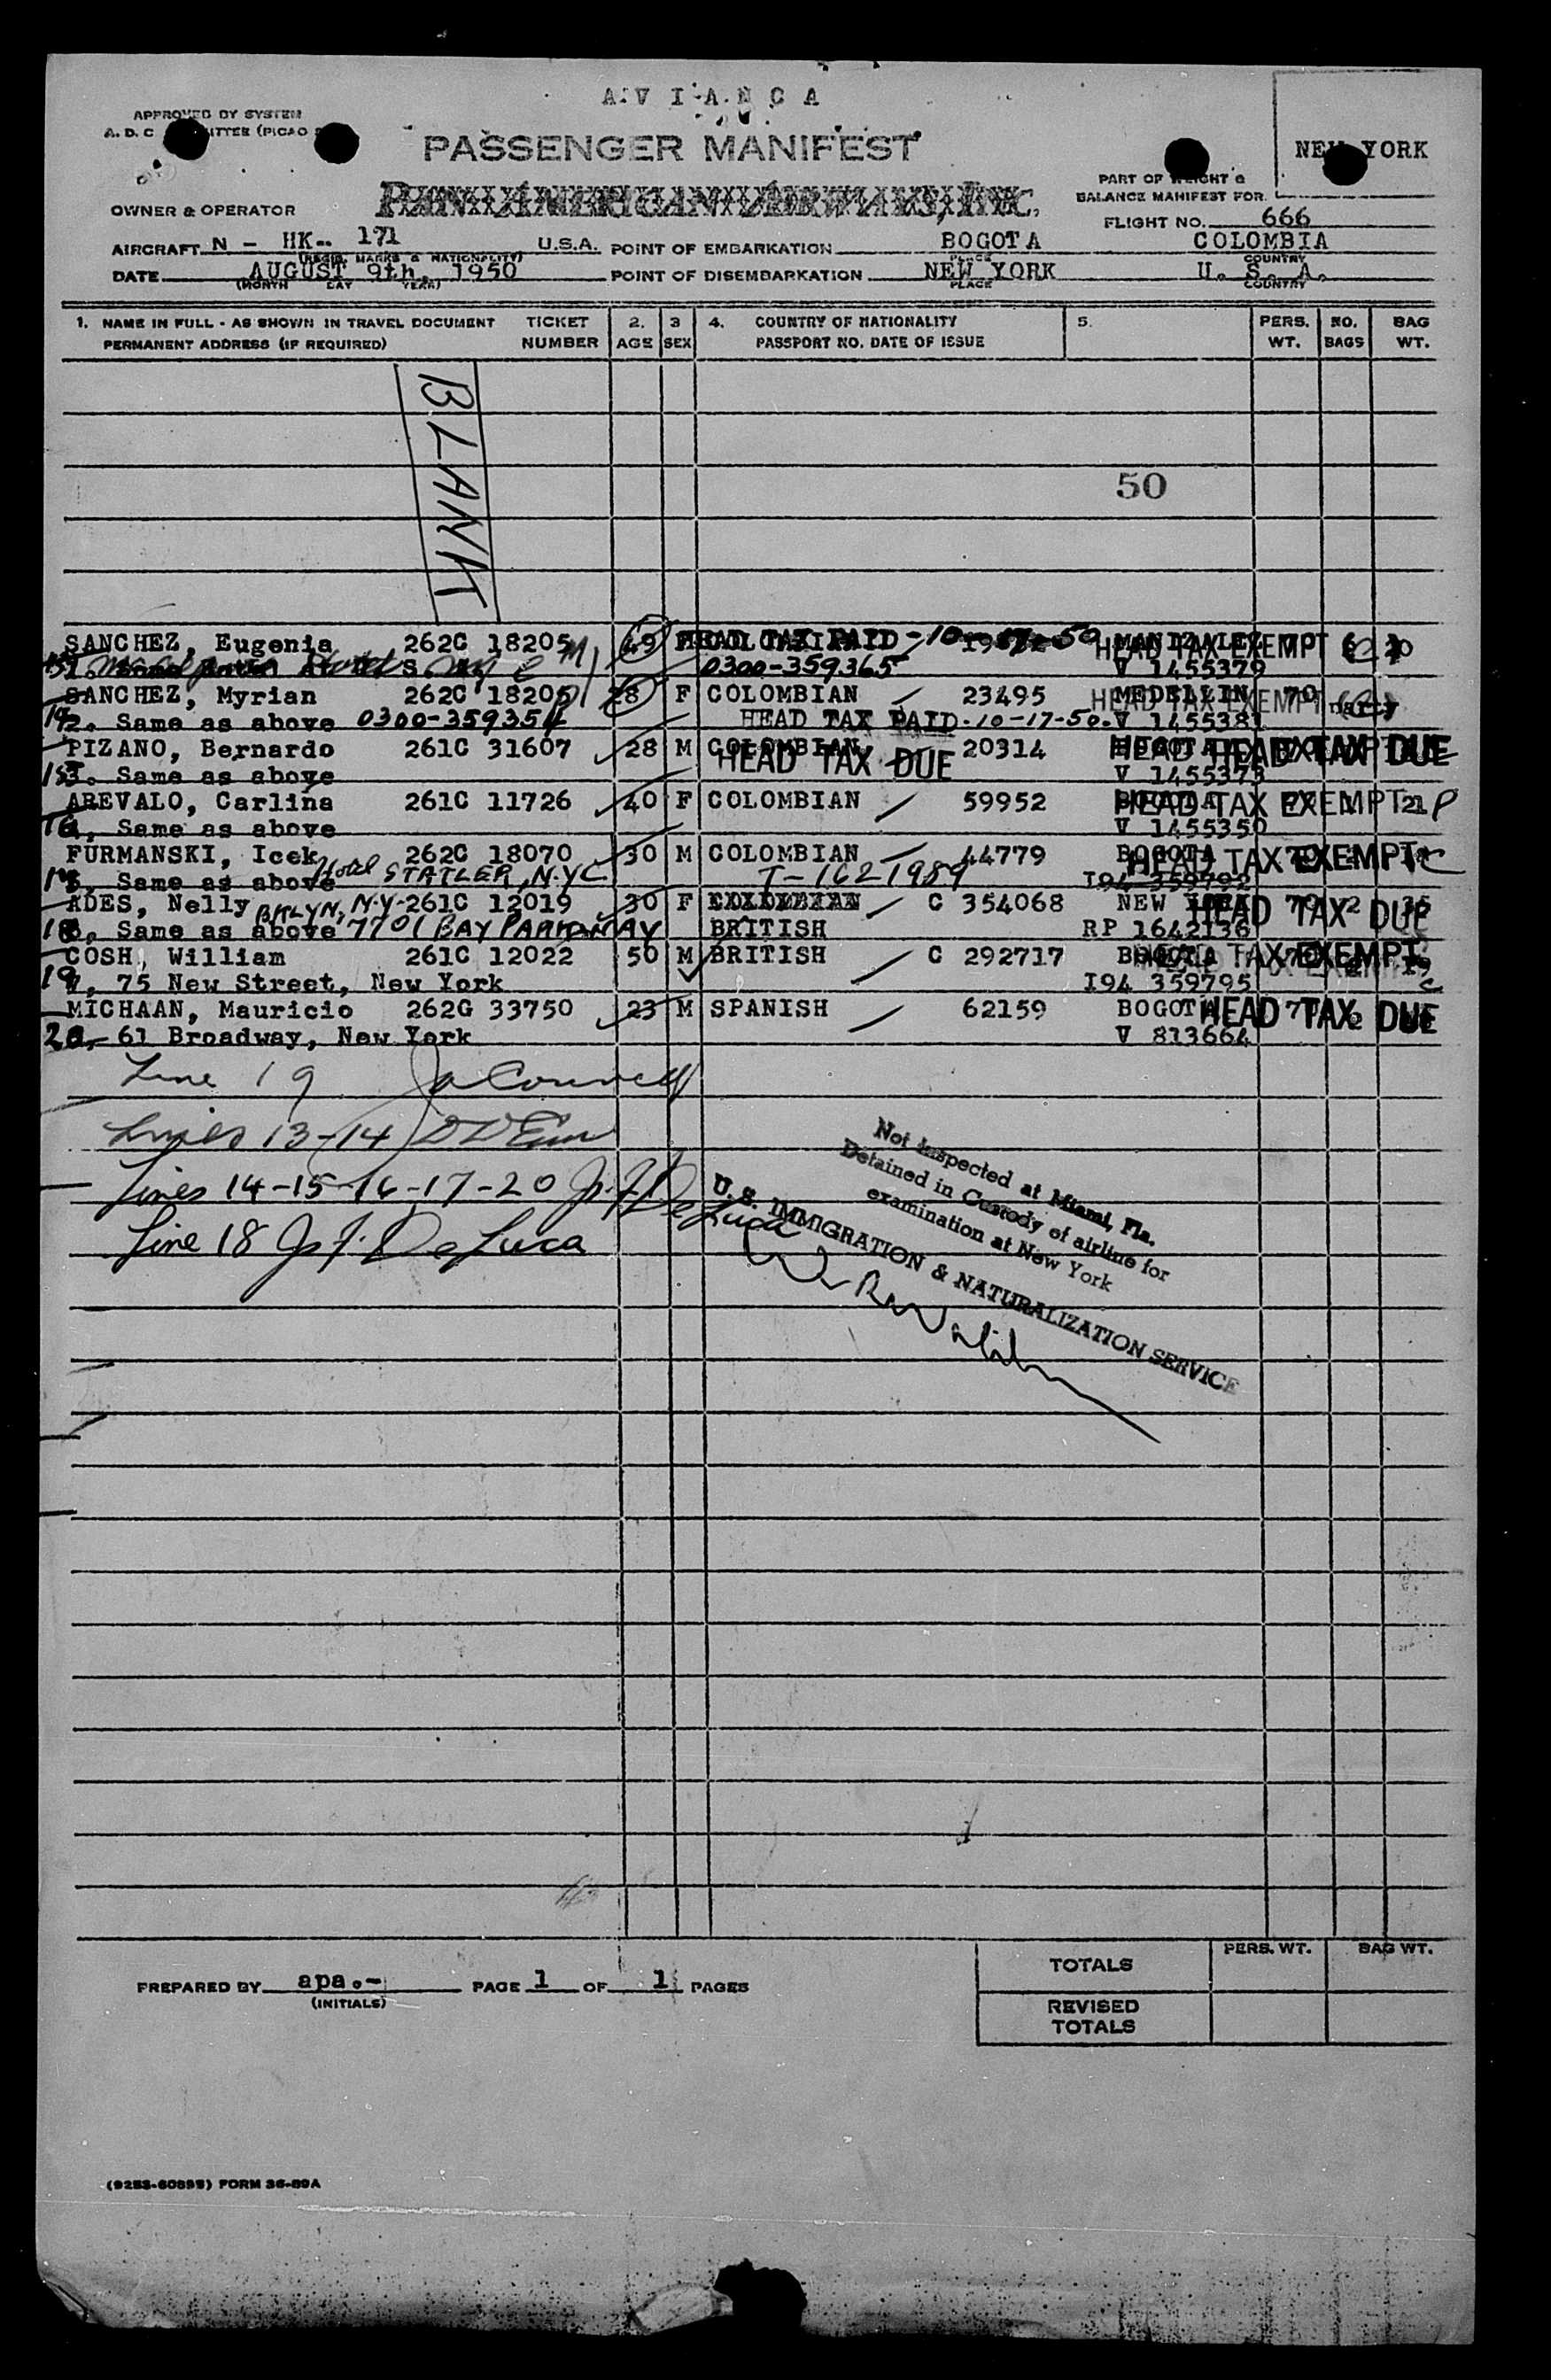 AVIANCA
APPROVED BY SYSTEM
A. D. C (PICAO
PASSENGER MANIFEST
NEW YORK
PART OF WEIGHT &
BALANCE MANIFEST FOR
OWNER & OPERATOR
FLIGHT NO. 666
AIRCRAFT N - HK-- 171 U.S.A. POINT OF EMBARKATION BOGOTA COLOMBIA
(REGIS. MARKS & NATIONALITY) PLACE COUNTRY
DATE AUGUST 9th, 1950 POINT OF DISEMBARKATION NEW YORK U. S. A.
(MONTH DAY YEAR) PLACE COUNTRY
1. NAME IN FULL - AS SHOWN IN TRAVEL DOCUMENT TICKET 2. 3 4. COUNTRY OF NATIONALITY 5. PERS. NO. BAG
PERMANENT ADDRESS (IF REQUIRED) NUMBER AGE SEX PASSPORT NO. DATE OF ISSUE WT. BAGS WT.
BLANK
50
SANCHEZ, Eugenia 262C 18205 49 F HEAD TAX PAID -10-17-50 HEAD TAX EXEMPT
0300-359365 V 1455379
SANCHEZ, Myrian 262C 18206 28 F COLOMBIAN 23495 MEDELLIN 70 HEAD TAX EXEMPT
14 2. Same as above 0300-359354 HEAD TAX PAID-10-17-50- V 1455381
PIZANO, Bernardo 261C 31607 28 M COLOMBIAN 20314 HEAD TAX DUE
15 3. Same as above HEAD TAX DUE V 1455373
AREVALO, Carlina 261C 11726 40 F COLOMBIAN 59952 BOGOTA HEAD TAX EXEMPT 21
16 Same as above V 1455350
FURMANSKI, Icek 262C 18070 30 M COLOMBIAN 44779 BOGOTA HEAD TAX EXEMPT
17 Same as above Hotel STATLER, N.Y.C T-1621989 I94 359792
ADES, Nelly BKLYN, N.Y- 261C 12019 30 F C 354068 NEW YORK 70 2 HEAD TAX DUE
18 Same as above 7701 BAY PARKWAY BRITISH RP 1642136
COSH, William 261C 12022 50 M BRITISH C 292717 BOGOTA HEAD TAX EXEMPT 19
19 75 New Street, New York I94 359795
MICHAAN, Mauricio 262G 33750 23 M SPANISH 62159 BOGOTA HEAD TAX DUE
20 61 Broadway, New York V 813664
Line 19
Lines 13-14
Lines 14-15-16-17-20 Js. F. DeLuca
Line 18 Js F. DeLuca
Not Inspected at Miami, Fla.
Detained in Custody of airline for
examination at New York
U. S. IMMIGRATION & NATURALIZATION SERVICE
TOTALS PERS. WT. BAG WT.
PREPARED BY apa.- PAGE 1 OF 1 PAGES
(INITIALS)
REVISED
TOTALS
FORM 36-89A